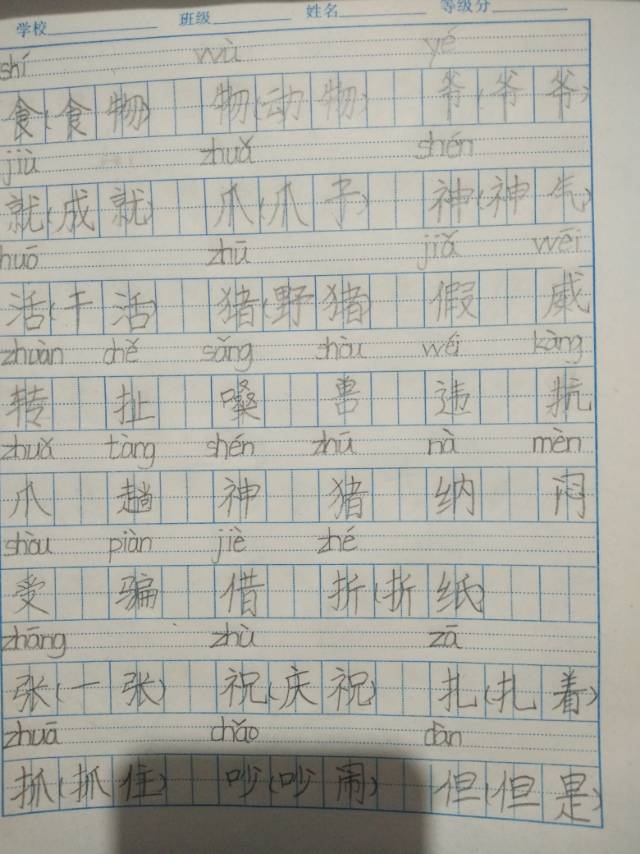 学校 班级 姓名 等级分
shí wù yé
食(食物) 物(动物) 爷(爷爷)
jiù zhuǎ shén
就(成就) 爪(爪子) 神(神气)
huó zhū jiǎ wēi
活(干活) 猪(野猪) 假 威
zhuàn chě sǎng shòu wéi kàng
转 扯 嗓 兽 违 抗
zhuǎ tàng shén zhū nà mèn
爪 趟 神 猪 纳 闷
shòu piàn jiè zhé
受 骗 借 折(折纸)
zhāng zhù zā
张(一张) 祝(庆祝) 扎(扎着)
zhuā chǎo dàn
抓(抓住) 吵(吵闹) 但(但是)